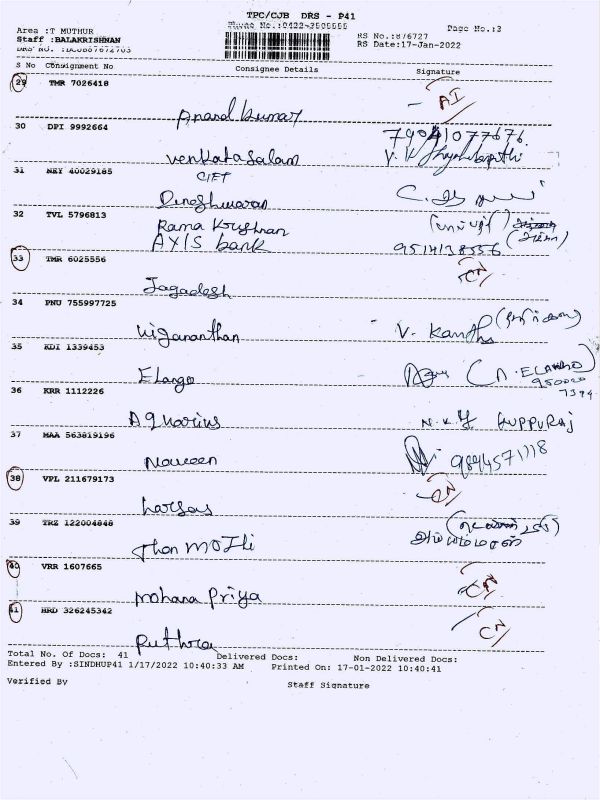 TPC/CJB DRS - P41
Area :T MUTHUR
Page No.:3
Staff :BALAKRISHNAN
RS No.:876727
RS Date:17-Jan-2022
S No Consignment No Consignee Details Signature
29 TMR 7026418
Anand kumar AI
30 DPI 9992664 7904107767 6
Venkatasalam
31 NEY 40029185 GIFT
Dineshwaran
32 TVL 5796813 Rama Krishnan
AXIS bank 9514138556
33 TMR 6025556 CN
Jagadesh
34 PNU 755997725
Vigananthan V. Kantha
35 KDI 1339453
Elango
36 KRR 1112226
Aquarius N.K.Y KUPPURAJ
37 MAA 563819196
Naveen 9894571118
38 VPL 211679173 CN
harsas
39 TRZ 122004848
Then MOZhi
40 VRR 1607665
Mohana Priya CN
41 HRD 326245342
Ruthra CN
Total No. Of Docs: 41 Delivered Docs: Non Delivered Docs:
Entered By :SINDHUP41 1/17/2022 10:40:33 AM Printed On: 17-01-2022 10:40:41
Verified By Staff Signature